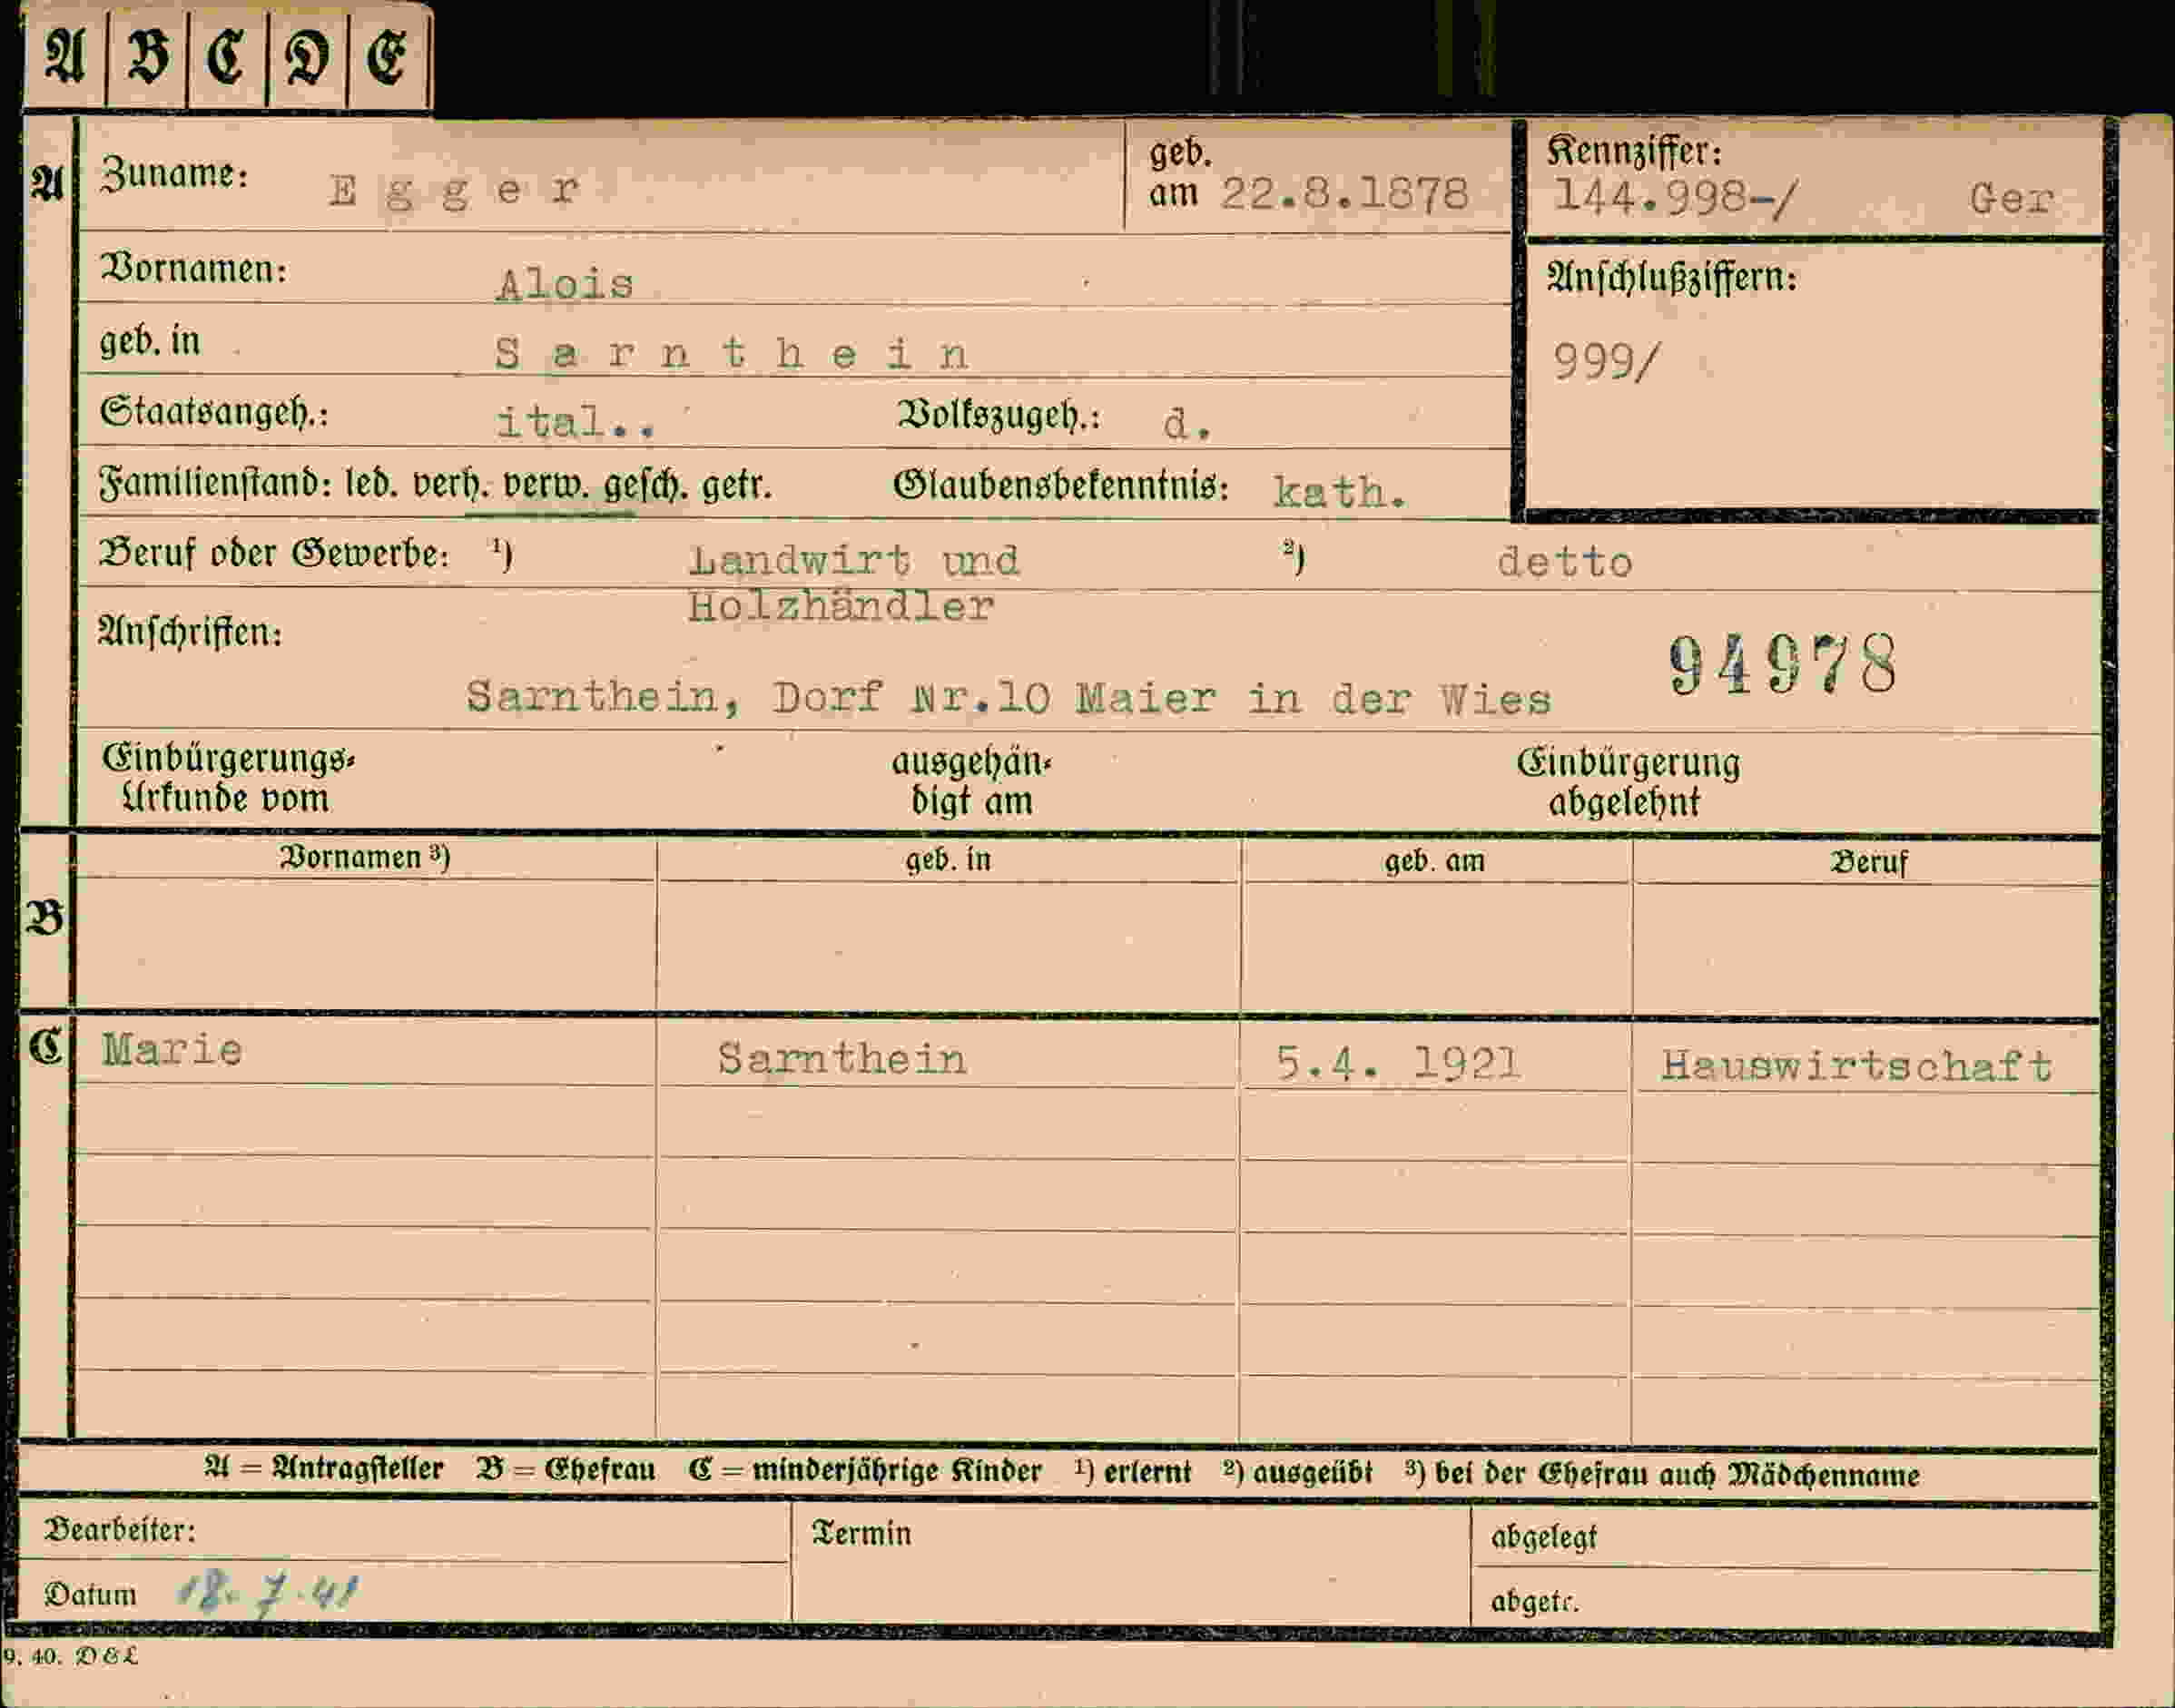 A B C D E
A Zuname: Egger geb. am 22.8.1878 Kennziffer: 144.998-/ Ger
Vornamen: Alois Anschlußziffern:
geb. in Sarnthein 999/
Staatsangeh.: ital.. Volkszugeh.: d.
Familienstand: led. verh. verw. gesch. getr. Glaubensbekenntnis: kath.
Beruf oder Gewerbe: ¹) Landwirt und ²) detto
Holzhändler
Anschriften:
94978
Sarnthein, Dorf Nr.10 Maier in der Wies
Einbürgerungs- ausgehän- Einbürgerung
Urkunde vom digt am abgelehnt
Vornamen ³) geb. in geb. am Beruf
B
C Marie Sarnthein 5.4. 1921 Hauswirtschaft
A = Antragsteller B = Ehefrau C = minderjährige Kinder ¹) erlernt ²) ausgeübt ³) bei der Ehefrau auch Mädchenname
Bearbeiter: Termin abgelegt
Datum 18. 7. 41 abgetr.
9. 40. D & L